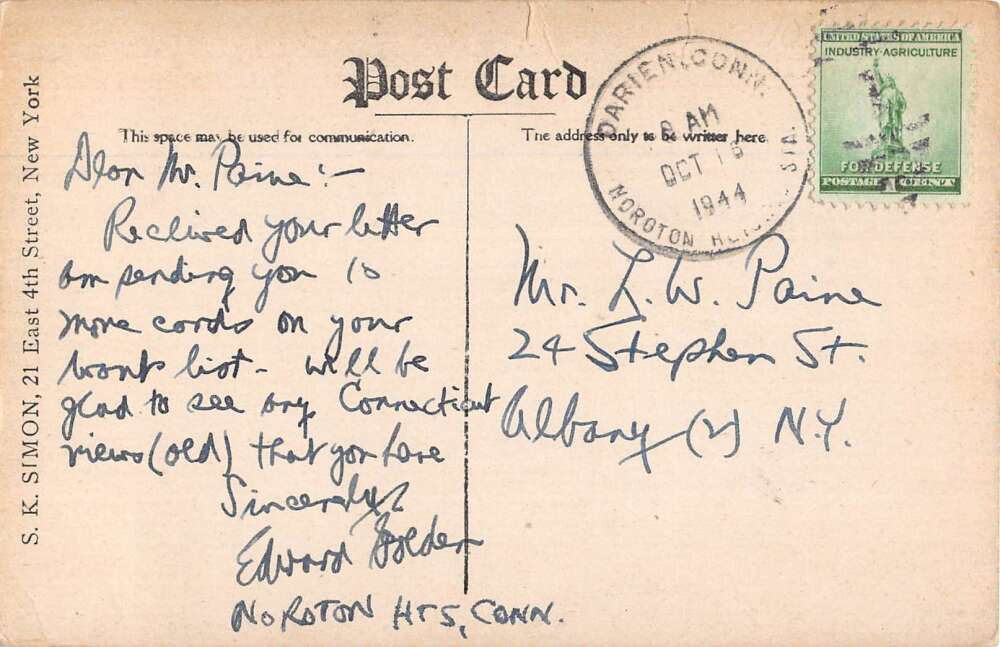 Post Card
This space may be used for communication.
The address only to be written here.
S. K. SIMON, 21 East 4th Street, New York
Dear Mr. Paine:-
Received your letter
am sending you 10
more cards on your
wants list - will be
glad to see any Connecticut
views (old) that you have
Sincerely
Edward Holden
NOROTON HTS, CONN.
DARIEN, CONN.
8 AM
OCT 16
1944
NOROTON HEIGHTS STA.
UNITED STATES OF AMERICA
INDUSTRY·AGRICULTURE
FOR DEFENSE
POSTAGE 1 CENT
Mr. L. W. Paine
24 Stephen St.
Albany (2) N.Y.